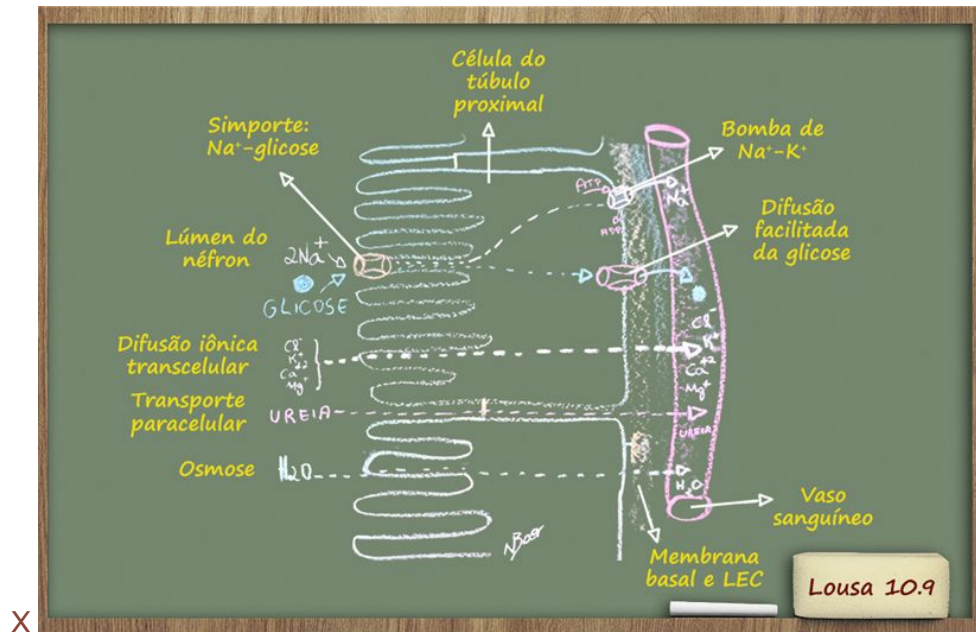 Célula do
túbulo
proximal
Simporte:
Na⁺-glicose
Bomba de
Na⁺-K⁺
ATP
ADP
Na⁺
Lúmen do
néfron
2Na⁺
GLICOSE
Difusão
facilitada
da glicose
Difusão iônica
transcelular
Cl⁻
K⁺
Ca⁺²
Mg⁺
Cl⁻
K⁺
Ca⁺²
Mg⁺
Transporte
paracelular
UREIA
UREIA
Osmose
H₂O
H₂O
Vaso
sanguíneo
Membrana
basal e LEC
Lousa 10.9
X